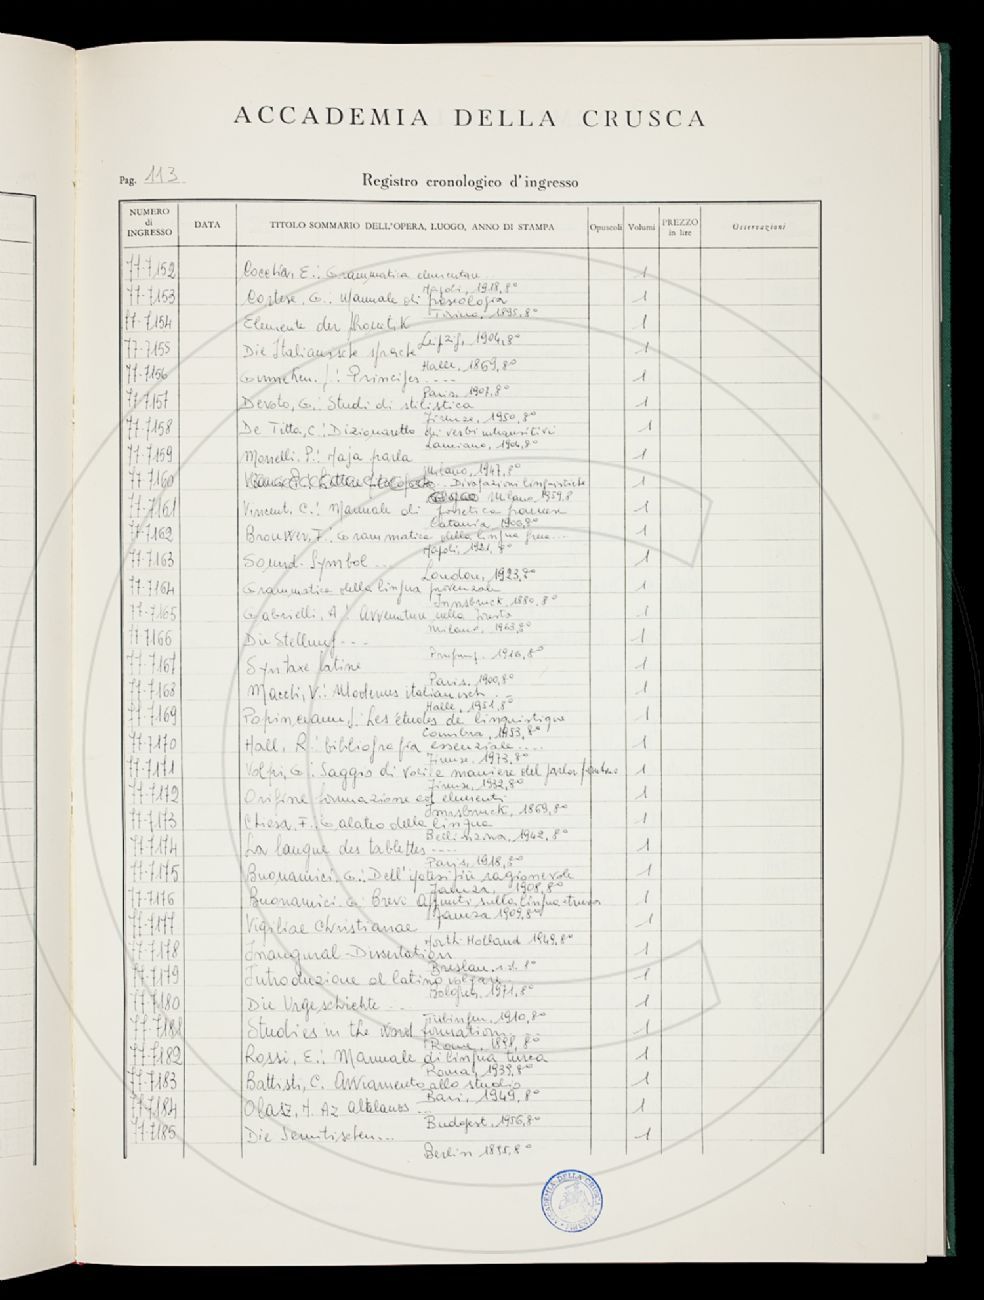 ACCADEMIA DELLA CRUSCA
Pag. 113
Registro cronologico d'ingresso
NUMERO di INGRESSO DATA TITOLO SOMMARIO DELL'OPERA, LUOGO, ANNO DI STAMPA Opuscoli Volumi PREZZO in lire Osservazioni
77-7152 E.: Grammatica elementare 1
Napoli, 1918, 8°
77-7153 Cortese, G.: Manuale di 1
Torino, 1895, 8°
77-7154 Elemente der Phonetik 1
Leipzig, 1904, 8°
77-7155 Die Italianische Sprache 1
Halle, 1869, 8°
77-7156 Principes .... 1
Paris, 1907, 8°
77-7157 Devoto, G.: Studi di stilistica 1
Firenze, 1950, 8°
77-7158 De Titta, C.: Dizionaretto dei verbi intransitivi 1
Lanciano, 1904, 8°
77-7159 P.: parla 1
Milano, 1947, 8°
77-7160 Divagazioni linguistiche 1
Milano, 1959, 8
77-7161 Vincenti C.: Manuale di fonetica francese 1
Catania, 1900, 8°
77-7162 Brouwer, F.: Grammatica della lingua 1
Napoli, 1921, 8°
77-7163 Sound-Symbol ... 1
London, 1923, 8°
77-7164 Grammatica della lingua provenzale 1
Innsbruck, 1880, 8°
77-7165 Gabrielli, A.: Avventure nella foresta 1
Milano, 1963, 8°
77-7166 Die Stellung ... 1
1916, 8°
77-7167 Syntaxe latine 1
Paris, 1900, 8°
77-7168 Macchi, V.: Modernes italianisch ... 1
Halle, 1951, 8°
77-7169 J.: Les études de linguistique 1
Coimbra, 1953, 8°
77-7170 Hall, R.: bibliografia essenziale .... 1
Firenze, 1973, 8°
77-7171 Volpi, G.: Saggio di voci e maniere del parlar fiorentino 1
Firenze, 1932, 8°
77-7172 Origine formazione ed elementi 1
Innsbruck, 1869, 8°
77-7173 Chiesa, F.: Galateo della lingua 1
Bellinzona, 1942, 8°
77-7174 La langue des tablettes .... 1
Paris, 1918, 8°
77-7175 Buonamici, G.: Dell'ipotesi più ragionevole 1
Faenza, 1908, 8°
77-7176 Buonamici, G.: Brevi appunti sulla lingua etrusca 1
Faenza 1909, 8°
77-7177 Vigiliae Christianae 1
North-Holland 1949, 8°
77-7178 Inaugural-Dissertation 1
Breslau, s.d. 8°
77-7179 Introduzione al latino volgare 1
Bologna, 1971, 8°
77-7180 Die Urgeschichte ... 1
Tubingen, 1910, 8°
77-7181 Studies in the word formation 1
Rome, 1898, 8°
77-7182 Rossi, E.: Manuale di lingua turca 1
Roma, 1939, 8°
77-7183 Battisti, C. Avviamento allo studio 1
Bari, 1949, 8°
77-7184 Olasz, H. Az Altalanos ... 1
Budapest, 1956, 8°
77-7185 Die Semitischen ... 1
Berlin 1895, 8°
ACCADEMIA DELLA CRUSCA FIRENZE